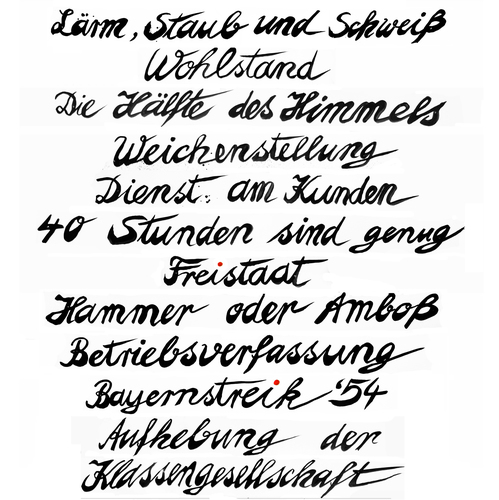 Lärm, Staub und Schweiß
Wohlstand
Die Hälfte des Himmels
Weichenstellung
Dienst am Kunden
40 Stunden sind genug
Freistaat
Hammer oder Amboß
Betriebsverfassung
Bayernstreik '54
Aufhebung der
Klassengesellschaft